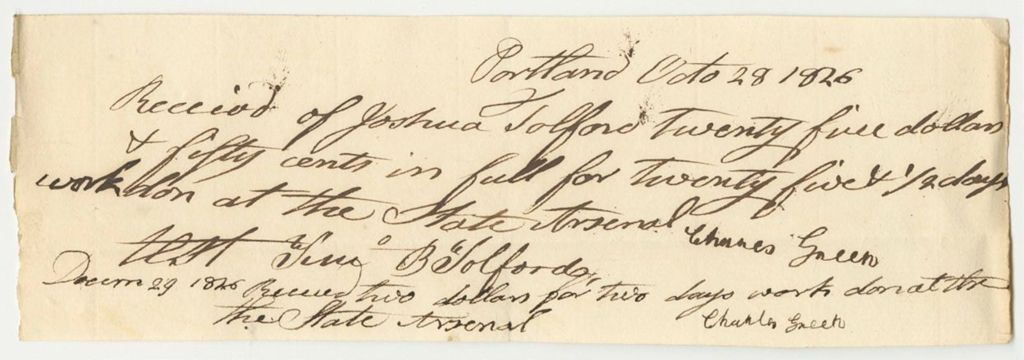 Portland Octo 28 1826
Receivd of Joshua Tolford twenty five dollars
& fifty cents in full for twenty five & 1/2 days
work don at the State Arsenal
Charles Green
B Tolford
Decem 29 1826 Receivd two dollars for two days work don at the
the State Arsenal
Charles Green